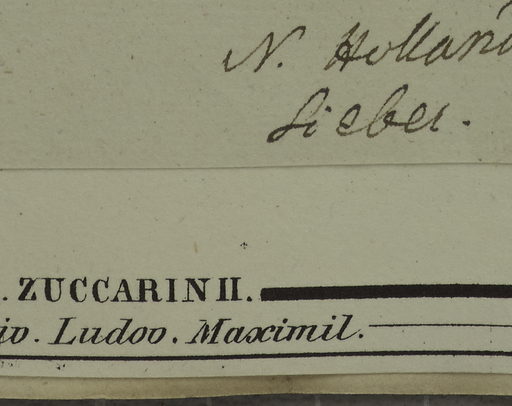 N. Holland
Sieber.
. ZUCCARINII.
iv. Ludov. Maximil.